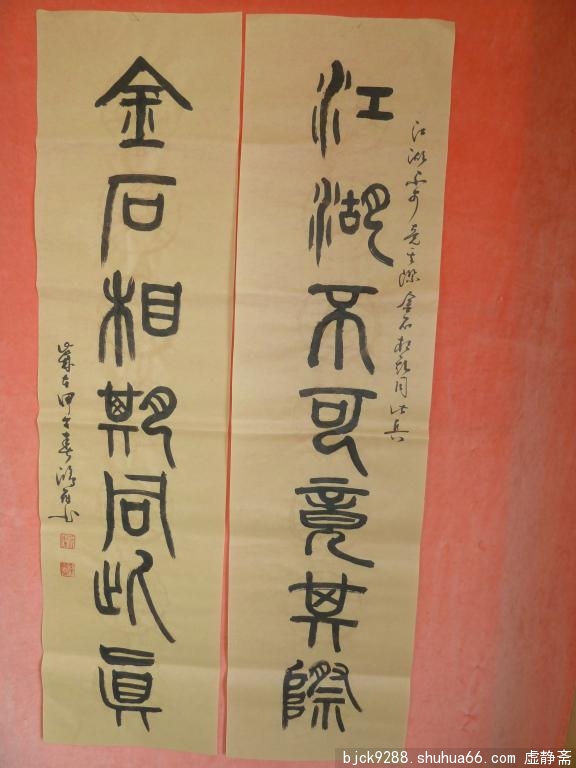 江湖不可竟其際
江湖不可竟其際金石相期同此真
金石相期同此眞
歲在甲午春
bjck9288.shuhua66.com 虚静斋